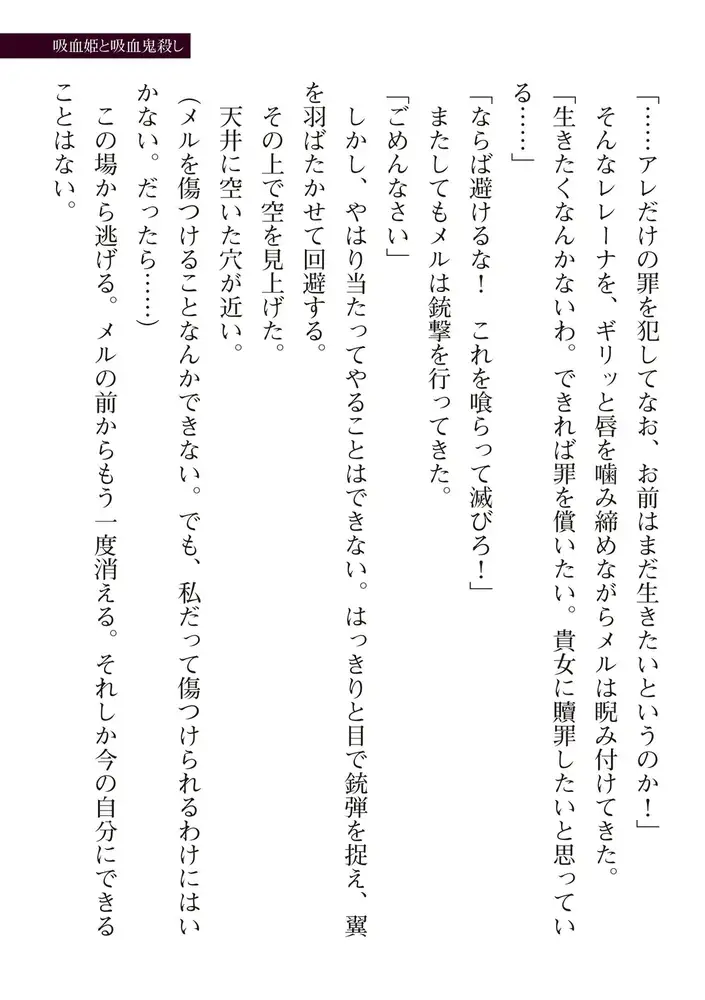 吸血姫と吸血鬼殺し
「……アレだけの罪を犯してなお、お前はまだ生きたいというのか！」
そんなレレーナを、ギリッと唇を噛み締めながらメルは睨み付けてきた。
「生きたくなんかないわ。できれば罪を償いたい。貴女に贖罪したいと思ってい
る……」
「ならば避けるな！　これを喰らって滅びろ！」
またしてもメルは銃撃を行ってきた。
「ごめんなさい」
しかし、やはり当たってやることはできない。はっきりと目で銃弾を捉え、翼
を羽ばたかせて回避する。
その上で空を見上げた。
天井に空いた穴が近い。
（メルを傷つけることなんかできない。でも、私だって傷つけられるわけにはい
かない。だったら……）
この場から逃げる。メルの前からもう一度消える。それしか今の自分にできる
ことはない。